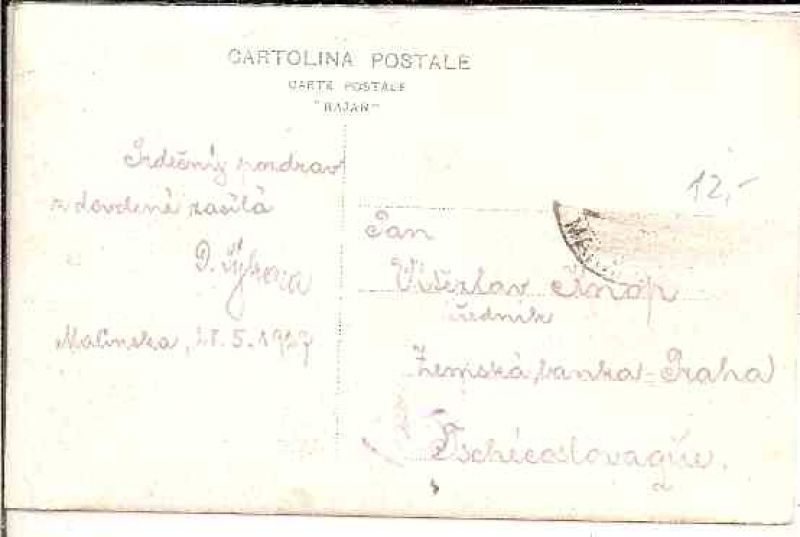 CARTOLINA POSTALE
CARTE POSTALE
"BAJAR"
Srdečný pozdrav
z dovolené zasílá
Malinska, 5.1927
12,-
Pan
Vítězslav Knop
úředník
Zemská banka - Praha
Tschécoslovaquie.